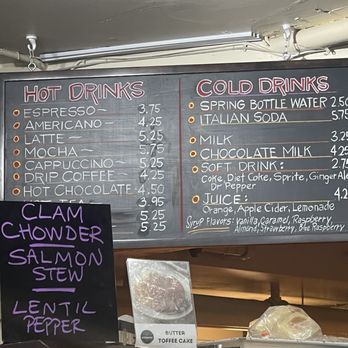 HOT DRINKS
ESPRESSO — 3.75
AMERICANO — 4.25
LATTE — 5.25
MOCHA — 5.75
CAPPUCCINO — 5.25
DRIP COFFEE — 4.25
HOT CHOCOLATE - 4.50
3.95
5.25
5.25
COLD DRINKS
SPRING BOTTLE WATER 2.50
ITALIAN SODA 5.75
MILK 3.25
CHOCOLATE MILK 4.25
SOFT DRINK: 2.75
Coke, Diet Coke, Sprite, Ginger Ale
Dr Pepper
JUICE: 4.2
Orange, Apple Cider, Lemonade
Syrup Flavors: Vanilla, Caramel, Raspberry,
Almond, Strawberry, Blue Raspberry
CLAM
CHOWDER
SALMON
STEW
LENTIL
PEPPER
BUTTER
TOFFEE CAKE